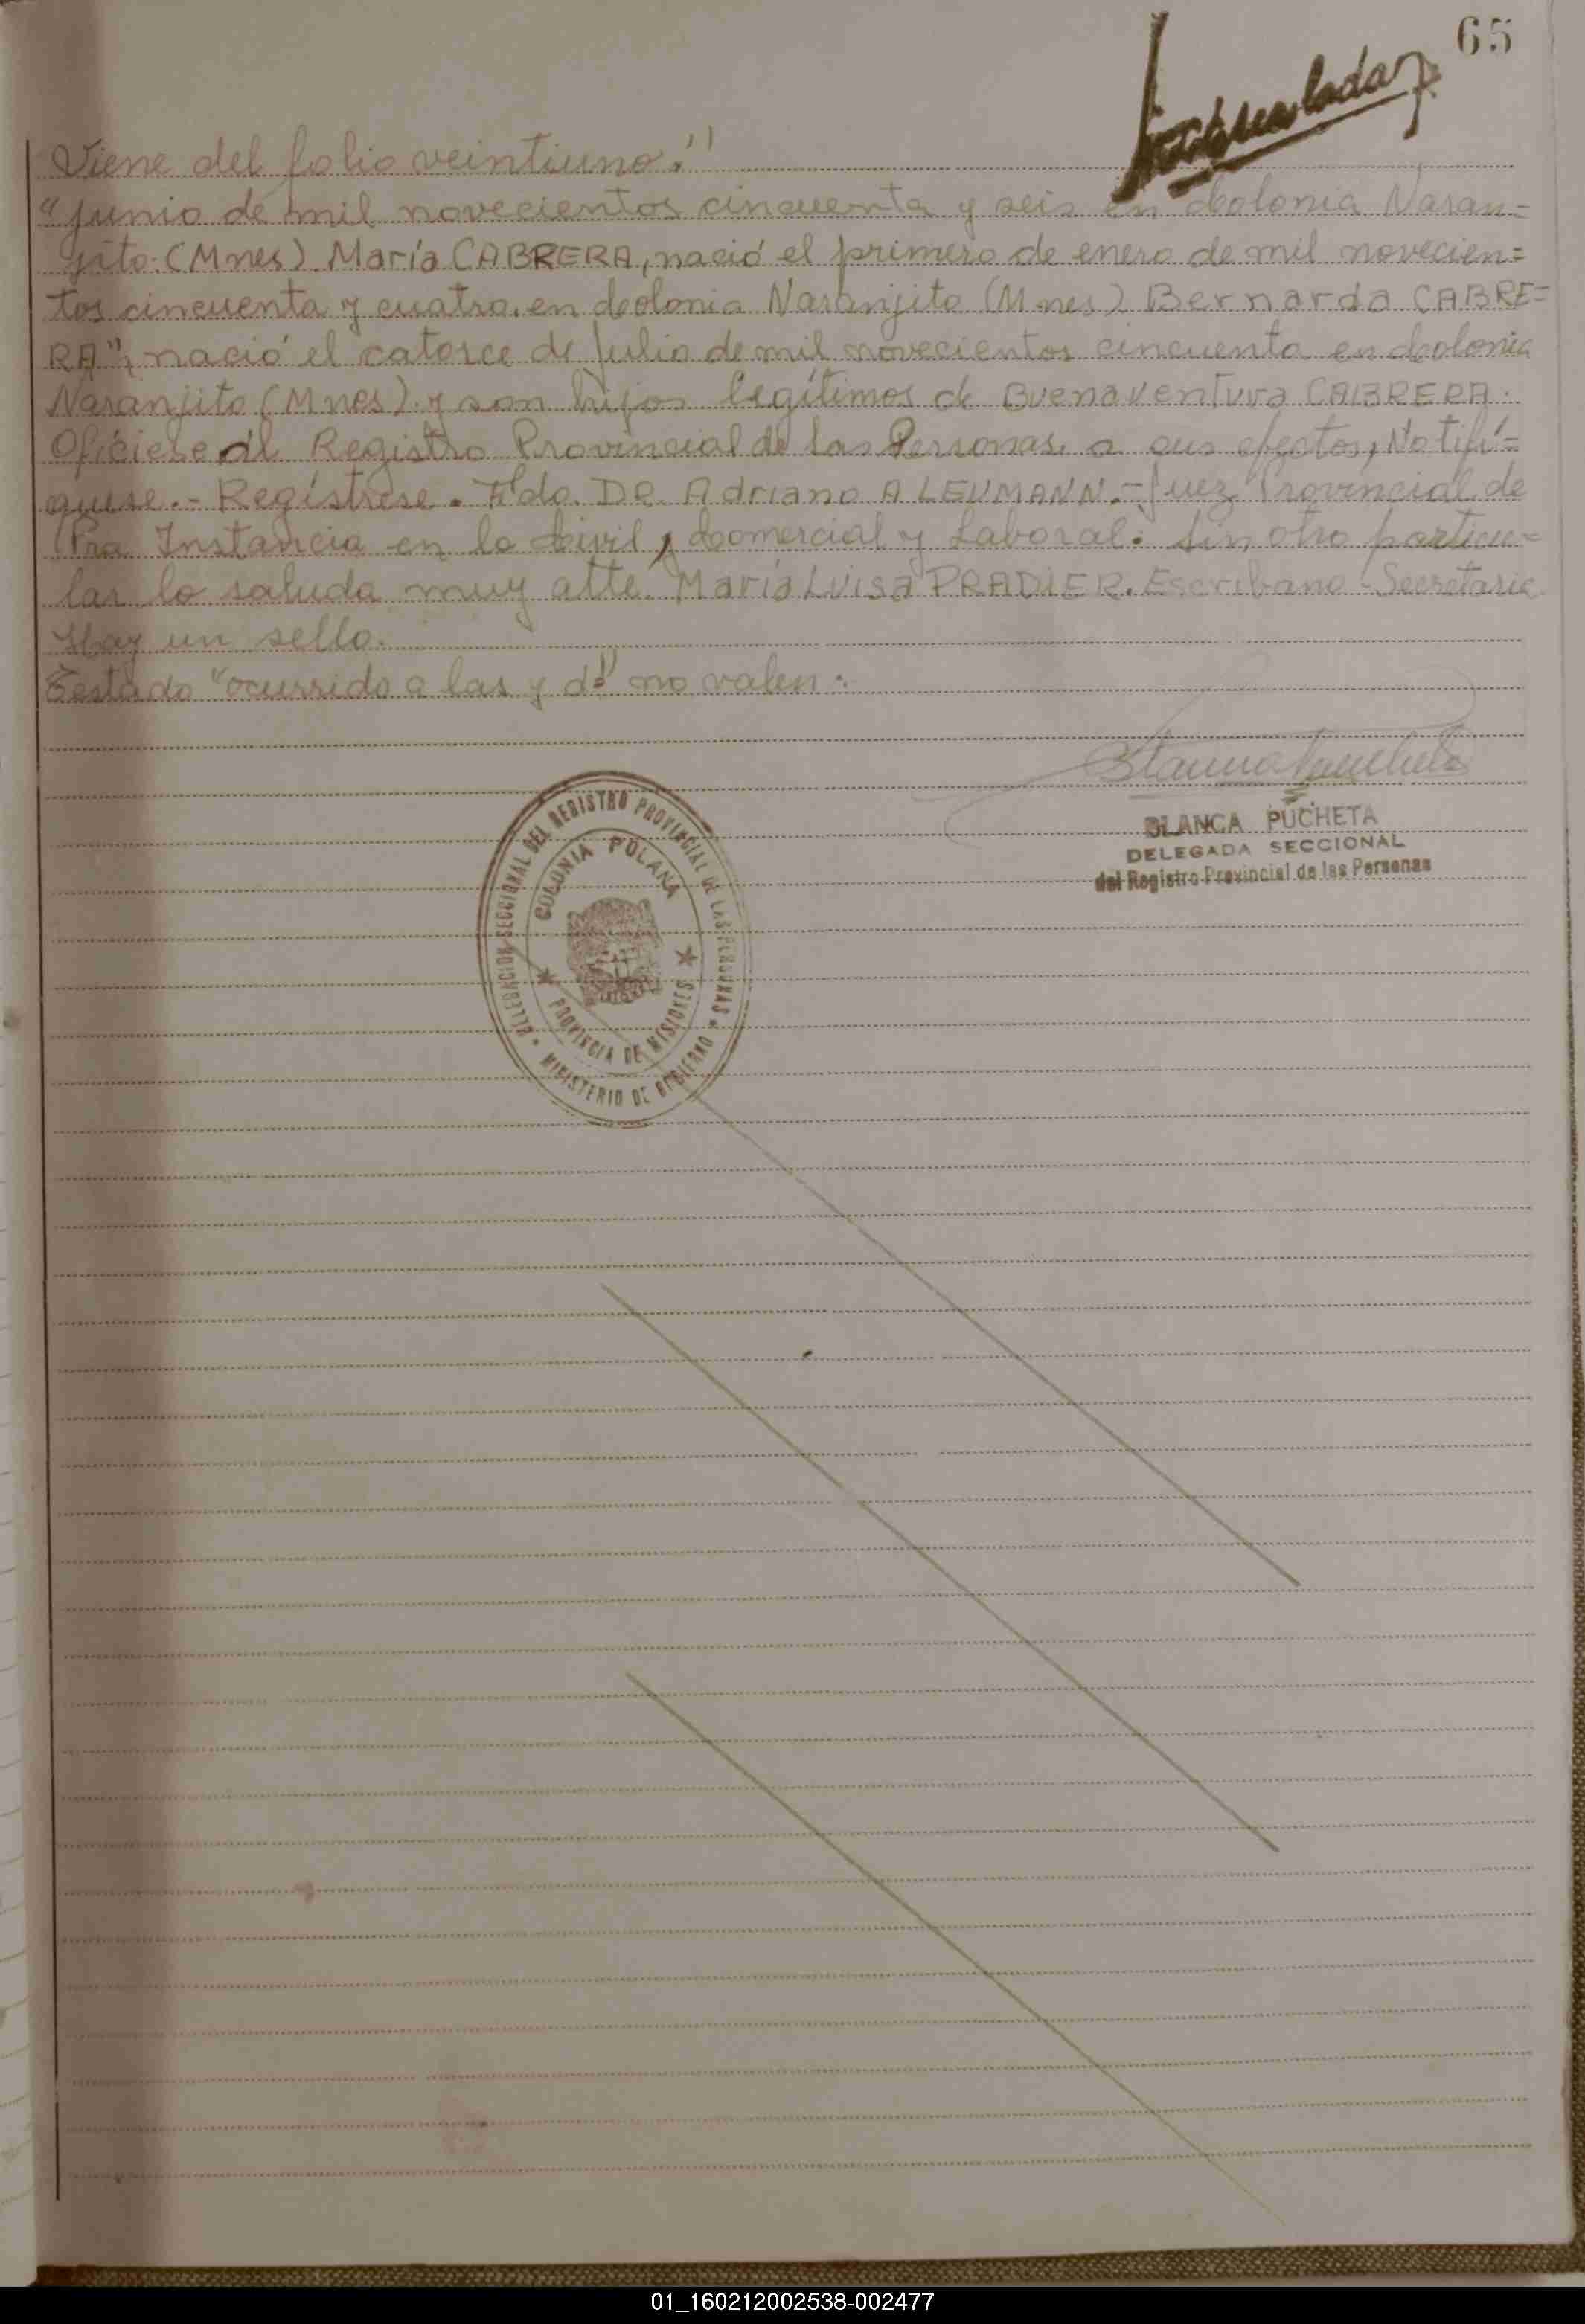 65
Viene del folio veintiuno."
"junio de mil novecientos cincuenta y seis en Colonia Naran=
jito (Mnes) María CABRERA, nació el primero de enero de mil novecien=
tos cincuenta y cuatro en Colonia Naranjito (Mnes) Bernarda CABRE=
RA", nació el catorce de Julio de mil novecientos cincuenta en Colonia
Naranjito (Mnes) y son hijos legítimos de Buenaventura CABRERA.
Ofíciese al Registro Provincial de las Personas a sus efectos, Notifí=
quese.- Regístrese. Fdo. DR. Adriano A LEUMANN.- Juez Provincial de
1ra Instancia en lo Civil, Comercial y Laboral. Sin otro particu=
lar lo saluda muy atte. María Luisa PRADIER. Escribano - Secretaria
Hay un sello.
Testado "ocurrido a las y d." no valen.
BLANCA PUCHETA
DELEGADA SECCIONAL
del Registro Provincial de las Personas
DELEGACION SECCIONAL DEL REGISTRO PROVINCIAL DE LAS PERSONAS
COLONIA POLANA
PROVINCIA DE MISIONES
MINISTERIO DE GOBIERNO
01_160212002538-002477